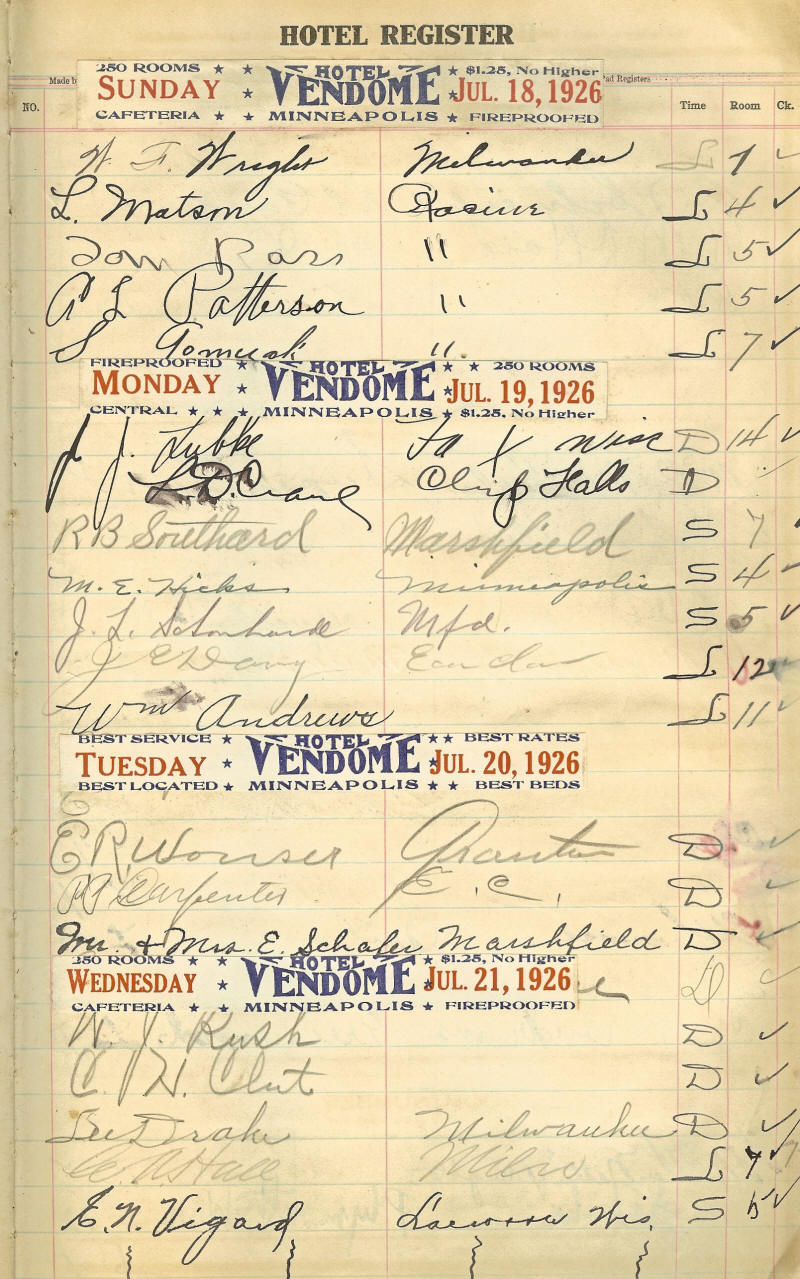 HOTEL REGISTER
Made b
Pad Registers
NO.
Time Room Ck.
250 ROOMS HOTEL $1.25, No Higher
SUNDAY VENDOME JUL. 18, 1926
CAFETERIA MINNEAPOLIS FIREPROOFED
W. F. Wright Milwaukee L 1 ✓
L. Matson Racine L 4 ✓
Tom " L 5 ✓
L Patterson " L 5 ✓
S " L 7 ✓
FIREPROOFED HOTEL 250 ROOMS
MONDAY VENDOME JUL. 19, 1926
CENTRAL MINNEAPOLIS $1.25, No Higher
J. J. Lubke La X Wisc D 14 ✓
L. D. Crane Falls D
R B Southard Marshfield S 7
M. E. Hicks Minneapolis S 4 ✓
J. L. Mfd. S 5 ✓
J E L 12
Wm Andrews L 11
BEST SERVICE HOTEL BEST RATES
TUESDAY VENDOME JUL. 20, 1926
BEST LOCATED MINNEAPOLIS BEST BEDS
E R Wonser D ✓
Carpenter E. C. D ✓
Mr. & Mrs. E. Schafer Marshfield D ✓
250 ROOMS HOTEL $1.25, No Higher
WEDNESDAY VENDOME JUL. 21, 1926
CAFETERIA MINNEAPOLIS FIREPROOFED
D ✓
W. J. Rush D ✓
C. H. D ✓
Lee Drake Milwaukee D ✓
Hall L 7 ✓
E. N. Vigard Lacrosse Wis. S ✓